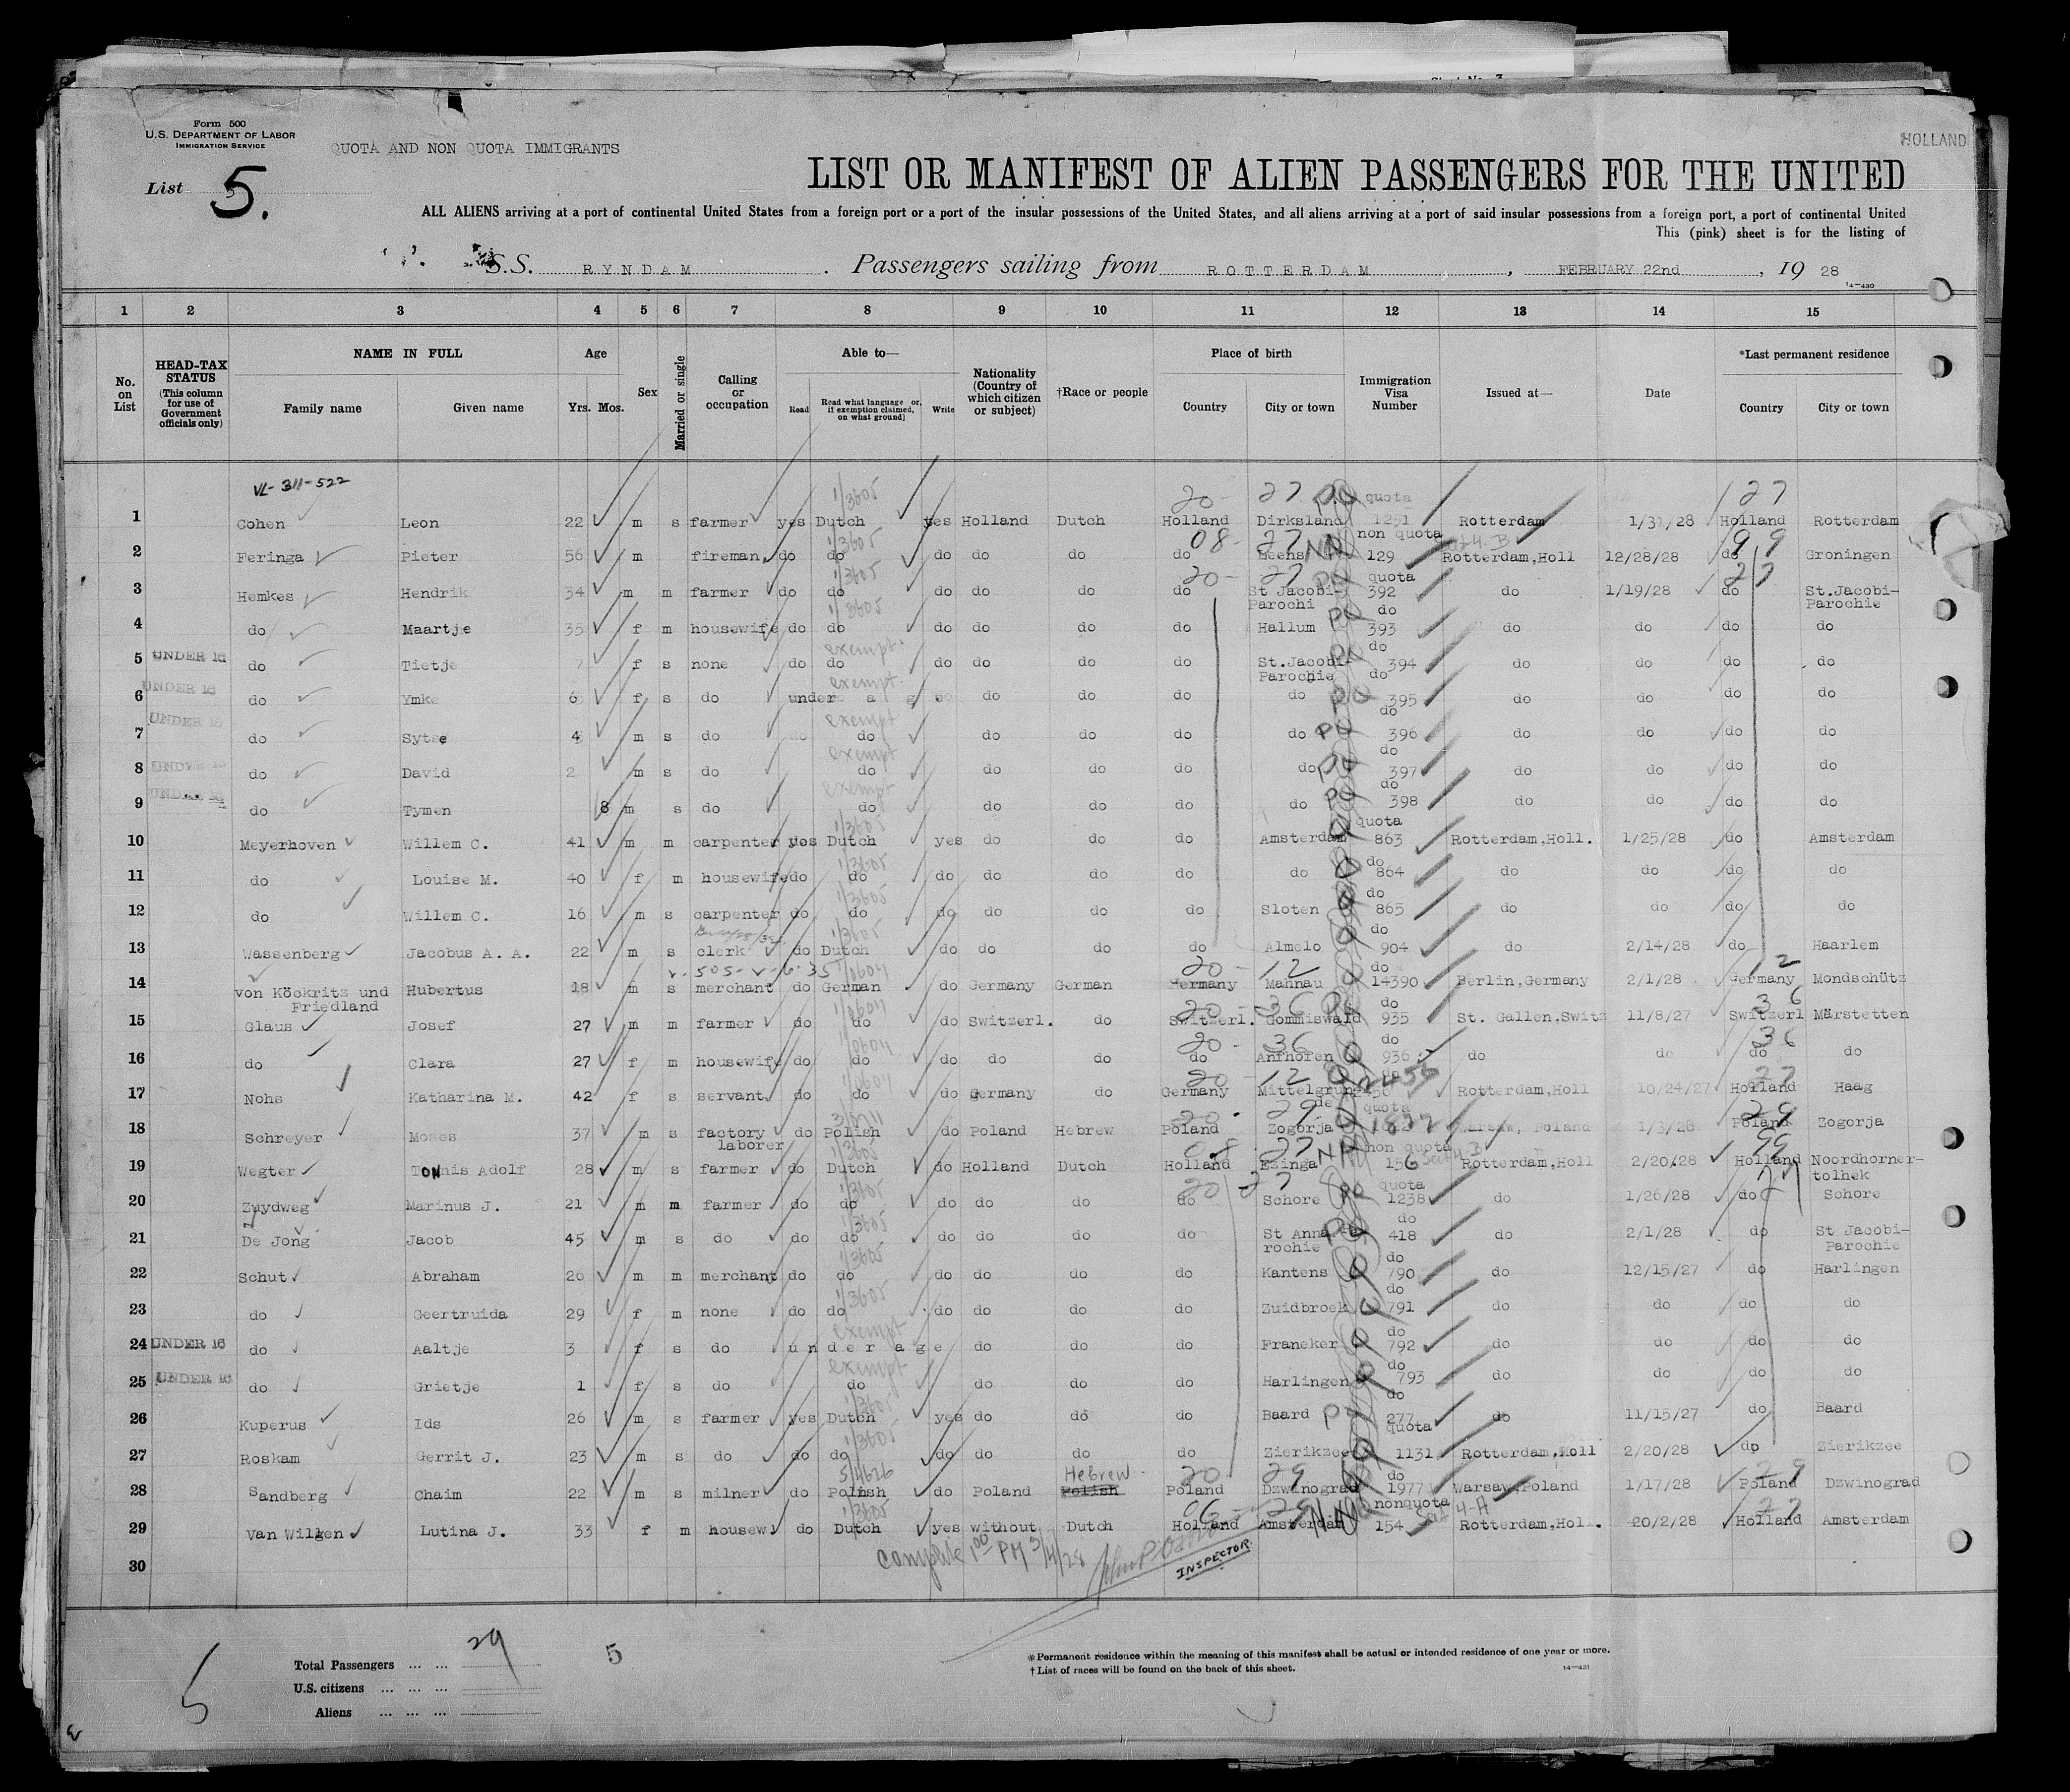 Form 500
U.S. DEPARTMENT OF LABOR
IMMIGRATION SERVICE
QUOTA AND NON QUOTA IMMIGRANTS
HOLLAND
List 5.
LIST OR MANIFEST OF ALIEN PASSENGERS FOR THE UNITED
ALL ALIENS arriving at a port of continental United States from a foreign port or a port of the insular possessions of the United States, and all aliens arriving at a port of said insular possessions from a foreign port, a port of continental United
This (pink) sheet is for the listing of
S.S. RYNDAM. Passengers sailing from ROTTERDAM, FEBRUARY 22nd, 19 28
14-430
1 2 3 4 5 6 7 8 9 10 11 12 13 14 15
No. on List
HEAD-TAX STATUS (This column for use of Government officials only)
NAME IN FULL Family name Given name
Age Yrs. Mos.
Sex
Married or single
Calling or occupation
Able to— Read Read what language or, if exemption claimed, on what ground] Write
Nationality (Country of which citizen or subject)
†Race or people
Place of birth Country City or town
Immigration Visa Number
Issued at—
Date
*Last permanent residence Country City or town
VL-311-522
1/3605 20- 27 quota 127
1 Cohen Leon 22 m s farmer yes Dutch yes Holland Dutch Holland Dirksland 1251 Rotterdam 1/31/28 Holland Rotterdam
1/3605 08- 27 non quota 99
2 Feringa Pieter 56 m fireman do do do do do do 129 Rotterdam,Holl 12/28/28 do Groningen
1/3605 20- 27 quota 27
3 Hemkes Hendrik 34 m m farmer do do do do do do St Jacobi-Parochi 392 do 1/19/28 do St.Jacobi-Parochie
1/3605 do
4 do Maartje 35 f m housewife do do do do do do Hallum 393 do do do do
exempt. do
5 UNDER 16 do Tietje 7 f s none do do do do do do St.Jacobi-Parochie 394 do do do do
exempt. do
6 UNDER 16 do Ymke 6 f s do under age do do do do 395 do do do do
exempt do
7 UNDER 16 do Sytse 4 m s do do do do do do 396 do do do do
exempt do
8 UNDER 16 do David 2 m s do do do do do do 397 do do do do
exempt do
9 UNDER 16 do Tymen 8 m s do do do do do do 398 do do do do
1/3605 quota
10 Meyerhoven Willem C. 41 m m carpenter yes Dutch yes do do do Amsterdam 863 Rotterdam,Holl. 1/25/28 do Amsterdam
1/3605 do
11 do Louise M. 40 f m housewife do do do do do do do 864 do do do do
1/3605 do
12 do Willem C. 16 m s carpenter do do do do do do Sloten 865 do do do do
1/3605 do
13 Wassenberg Jacobus A. A. 22 m s clerk do Dutch do do do do Almelo 904 do 2/14/28 do Haarlem
20- 12 do 12
14 von Köckritz und Friedland Hubertus 18 m s merchant do German do Germany German Germany Mahnau 14390 Berlin,Germany 2/1/28 Germany Mondschütz
20- 36 do 36
15 Glaus Josef 27 m m farmer do do do Switzerl. do Switzerl. Gommiswald 935 St. Gallen,Switz 11/8/27 Switzerl Märstetten
20- 36 do 36
16 do Clara 27 f m housewife do do do do do do 936 do do do do
20- 12 2455 27
17 Nohs Katharina M. 42 f s servant do do do Germany do Germany Mittelgrunde Rotterdam,Holl 10/24/27 Holland Haag
20- 29 quota 29
18 Schreyer Moses 37 m s factory laborer do Polish do Poland Hebrew Poland Zogorja Warsaw, Poland 1/3/28 Poland Zogorja
1/3605 08- 27 non quota 99
19 Wegter Tonnis Adolf 28 m s farmer do Dutch do Holland Dutch Holland Ezinga 156 Rotterdam,Holl 2/20/28 Holland Noordhorner-tolhek
1/3605 20 27 quota
20 Zuydweg Marinus J. 21 m m farmer do do do do do do Schore 1238 do 1/26/28 do Schore
1/3605 do
21 De Jong Jacob 45 m s do do do do do do do St Anna Parochie 418 do 2/1/28 do St Jacobi-Parochie
1/3605 do
22 Schut Abraham 26 m m merchant do do do do do do Kantens 790 do 12/15/27 do Harlingen
1/3605 do
23 do Geertruida 29 f m none do do do do do do Zuidbroek 791 do do do do
exempt do
24 UNDER 16 do Aaltje 3 f s do under age do do do Franeker 792 do do do do
exempt do
25 UNDER 16 do Grietje 1 f s do do do do do Harlingen 793 do do do do
do
26 Kuperus Ids 26 m s farmer yes Dutch yes do do do Baard 277 do 11/15/27 do Baard
1/3605 quota
27 Roskam Gerrit J. 23 m s do do do do do do do Zierikzee 1131 Rotterdam,Holl 2/20/28 do Zierikzee
Hebrew 20 29 do 29
28 Sandberg Chaim 22 m s milner do Polish do Poland Polish Poland Dzwinograd 1977 Warsaw,Poland 1/17/28 Poland Dzwinograd
1/3605 06- 29 nonquota 4-A 27
29 Van Wilgen Lutina J. 33 f m housew. do Dutch yes without Dutch Holland Amsterdam 154 Rotterdam,Holl. 20/2/28 Holland Amsterdam
Complete 1 00 PM 3/4/28
INSPECTOR.
30
Total Passengers 29
5
U.S. citizens
Aliens
5
*Permanent residence within the meaning of this manifest shall be actual or intended residence of one year or more.
†List of races will be found on the back of this sheet.
14-431